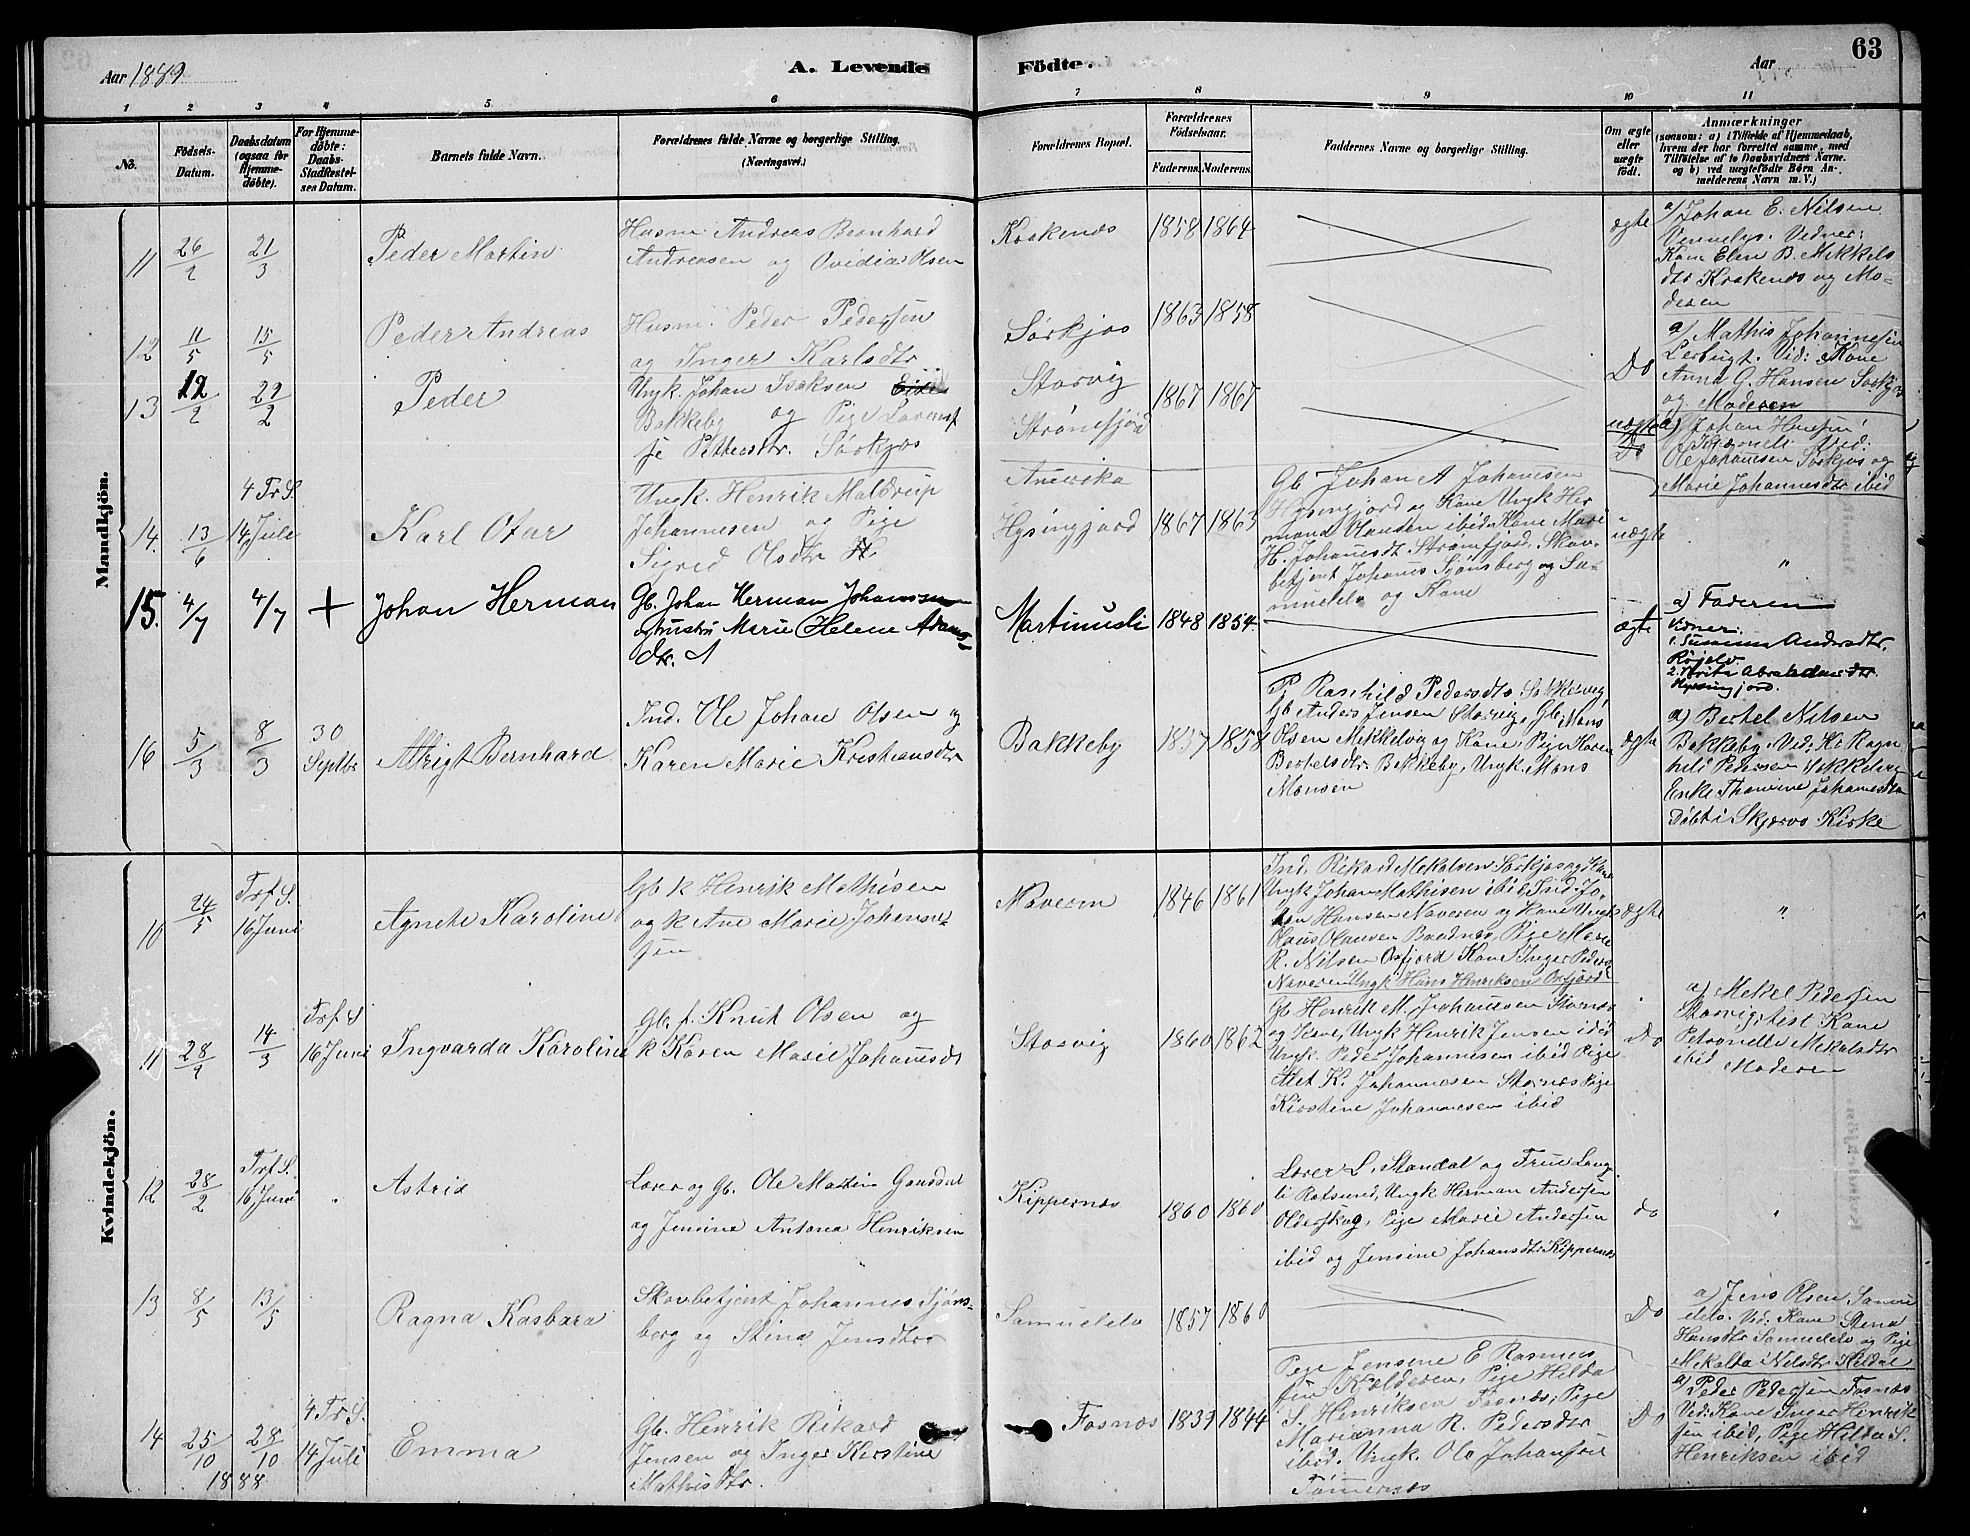 Aar 1889
A. Levende
Födte.
Aar
63
1 2 3 4 5 6 7 8 9 10 11
No.
Födsels-
Datum.
Daabsdatum
(ogsaa for
Hjemme-
döbte).
For Hjemme-
döbte:
Daabs-
Stadfæstel-
ses Datum.
Barnets fulde Navn.
Forældrenes fulde Navne og borgerlige Stilling.
(Næringsvei.)
Forældrenes Bopæl.
Forældrenes
Födselsaar.
Faderens. Moderens.
Faddernes Navne og borgerlige Stilling.
Om ægte
eller
uægte
födt.
Anmærkninger
(saasom: a) i Tilfælde af Hjemmedaab,
hvem der har forrettet samme, med
Tilföielse af to Daabsvidners Navne.
og b) ved uægtefödte Börn An-
melderens Navn m. V.)
Mandkjön.
11
26/2
21/3
Peder Martin
Husm. Andreas Bernhard
Andreasen og Ovidia Olsen
Krakenæs
1858 1864
ægte
a/ Johan E. Nilsen
Vennelys. Vedner:
Kone Elen B. Mikkels
dtr Krakenæs og Mo-
deren
12
11/5
15/5
Peder Andreas
Husm. Peder Pedersen
og Inger Karlsdtr.
Sörkjos
1863 1858
Do
a/ Mathis Johannesen
Lerbugt. Vid: Kone
Anna G. Hansen Sörkjos
og Moderen
13
12/2
27/2
Peder
Ungk. Johan Isaksen
Bakkeby og Pige Lorents
se Pettersdtr. Sörkjos
Storvig
Strömfjord
1867 1867
uægte
Do
a) Johan Hansen
Ole Johansen Sörkjos og
Marie Johannesdtr ibid
14.
13/6
4 Tr S.
14 Juli
Karl Otar
Ungk. Henrik Maldrup
Johannesen og Pige
Sigrid Olsdtr H.
Amerika
Hysingjord
1867 1863
Gb Johan A Johansen
Hysingjord og Kone Ungk Her
mand Hansen ibid Kone Mari
H. Johansdt Strömfjord, Skov-
betjent Johannes Sjönsberg og Sa-
muelelv og Kone
uægte
"
15.
4/7
4/7
+
Johan Herman
Gb. Johan Herman Johansen
og hustru Marie Helene Adams-
dtr. A
Martinusli
1848 1854.
ægte
a) Faderen
Vidner:
1. Susanna Andersdtr.
Röjelv.
2. Berit Abrahamsdtr
Hyssingjord.
16
5/3
8/3
30
Septbr
Altrigt Bernhard
Ind. Ole Johan Olsen og
Karen Marie Kristiansdtr
Bakkeby
1837 1858
P. Ragnhild Pedersdtr Sokkelvig,
Gb Anders Jensen Storvig, Gb. Mons
Olsen Mikkelvig og Kone, Pige Karen
Bertelsdtr. Bakkeby, Ungk. Mons
Monsen
ægte
a) Bertel Nilsen
Bakkeby. Ved: K. Ragn
hild Pedersen Sokkelvig
Enke Thomine Johannesdtr
Döbt i Skjærvø Kirke
Kvindekjön.
10
24/5
Trf. S.
16 Juni
Agnete Karoline
Gb k Henrik Mathisen
og k Ane Marie Johannes-
sen
Naveren
1846 1861
Ind. Rikard Mekalsen Sörkjos og Kone
Ungk Johan Mathisen ibid Ind. Jo-
han Hansen Naveren og Kone Ungk
Olaus Olausen Baadnæs, Pige Marie
R. Nilsen Oxfjord Kone Inger Peders
Naveren Ungk Hans Henriksen Oxfjord
ægte
"
11
28/2
14/3
Trf S
16 Juni
Ingvarda Karoline
Gb. f. Knut Olsen og
k Karen Marie Johansdt
Storvig
1860 1862
Gb Henrik M. Johansen Stornæs
og Kone, Ungk Henrik Jensen ibid
Ungk. Peder Johannesen ibid Pige
Alet K. Johannesen Stornæs Pige
Kirstine Johannesen ibid
Do
a) Mekel Pedersen
Storvig tilst Kone
Petronelle Mekalsdtr
ibid
Moderen
12
28/2
Trf. S.
16 Juni
"
Astrid
Lærer og Gb. Ole Martin Gaudsdal
og Jensine Antona Henriksen
Kippernæs
1860 1860
Lærer L. Standal og Frue Lang-
li Rotsund, Ungk Herman Andersen
Olderskog, Pige Marie Andersen
ibid og Jensine Johansdtr Kippernæs
do
"
13
8/5
13/5
Ragna Kasbara
Skovbetjent Johannes Sjöns-
berg og Stina Jensdtr
Samuelelv
1857 1860
Do
a) Jens Olsen Samu
elelv. Vid: Kone Stena
Hansdtr Samuelelv og Pige
Mekalda Nilsdtr. Kildal
14
25/10
1888
28/10
4 Tr S.
14 Juli
Emma
Gb. Henrik Rikard
Jensen og Inger Kirstine
Mathisdtr.
Fosnæs
1839 1844
Pige Jensine E Rasmus
sen Kjelderen, Pige Hilda
S. Henriksen Fosnæs, Pige
Marianna R. Pedersdtr
ibid. Ungk. Ole Johansen
Tömernæs
Do
a) Peder Pedersen Fosnæs
Vid: Kone Inger Henrik
sen ibid, Pige Hilda S.
Henriksen ibid